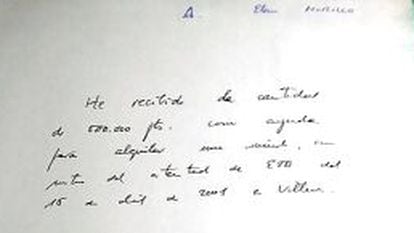 A. Elena MURILLO
He recibido la cantidad
de 500.000 pts. como ayuda
para alquilar una
del atentado de ETA del
15 de abril de 2001 a